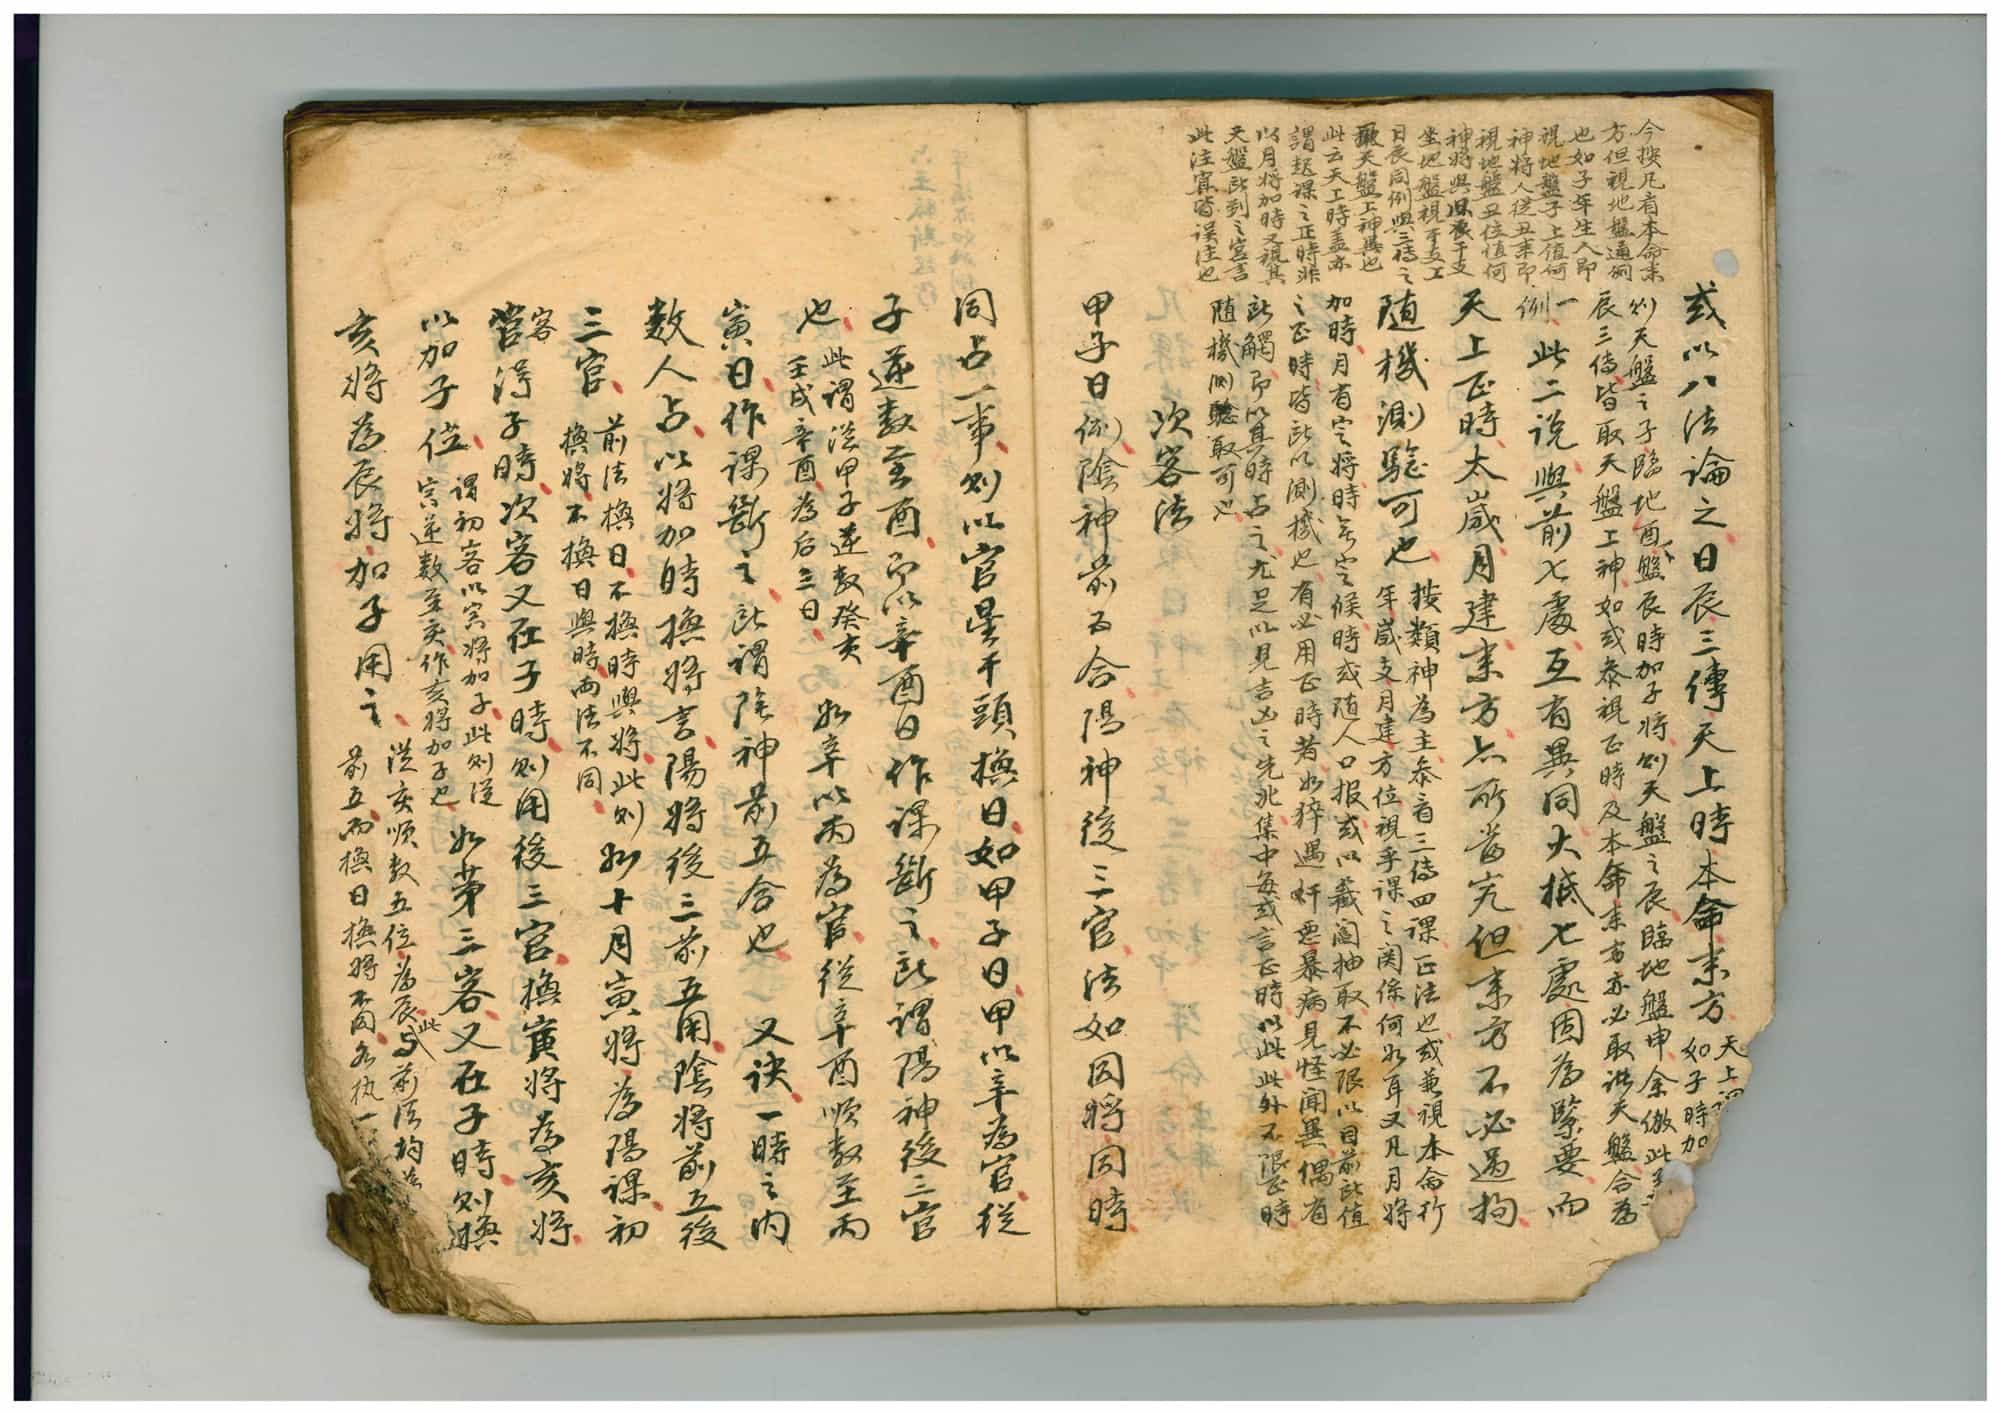 今按凡看本命来
方但視地盤通例
也如子年生人即
視地盤子上值何
神将人從丑来即
視地盤丑位值何
神将與干支
坐地盤視干支上
日辰同例與三傳之
天盤上神異也
此云天上時蓋亦
謂起課之正時非
以月将加時又視其
天盤所到之宮言
此注實皆误注也
或以八法論之日辰三傳天上時本命来方
天上
如子時加
则天盤之子臨地酉盤辰時加子将则天盤之辰臨地盤申余倣此
辰三傳皆取天盤上神如或叅視正時及本命来方亦必取諸天盤合為
一
例
此二说與前七處互有異同大抵七處固為緊要而
天上正時太嵗月建来方亦所當究但来方不必過拘
随機測騐可也
按類神為主叅看三傳四課正法也或兼視本命行
年嵗支月建方位視乎課之関係何如耳又凡月将
加時月有定将時无定候時或随人口报或以蔵阄抽取不必限以目前所值
之正時皆所以測機也有必用正時者如猝遇奸惡暴病見怪闻異偶有
所觸即以其時占之尤足以見吉凶之先兆集中每或言正時以此此外不限正時
随機測騐取可也
次客法
甲子日例陰神前五合陽神後三官法如因将同時
同占一事则以官星干頭換日如甲子日甲以辛為官從
子逆数至酉即以辛酉日作课斷之所謂陽神後三官
也
此謂從甲子逆数癸亥
壬戌辛酉為后三日
如辛以丙為官從辛酉順数至丙
寅日作课斷之所謂陰神前五合也 又诀一時之内
数人占以将加時換将言陽将後三前五用陰将前五後
三官
前法換日不換時與将此则
換将不換日與時两法不同
如十月寅将為陽课初
客
官得子時次客又在子時则用後三官換寅将為亥将
以加子位
謂初客以寅将加子此则從
寅逆数至亥作亥将加子也
如第三客又在子時则換
亥将為辰将加子用之
從亥順数五位為辰此與前法均
前五而換日換将不同各执一